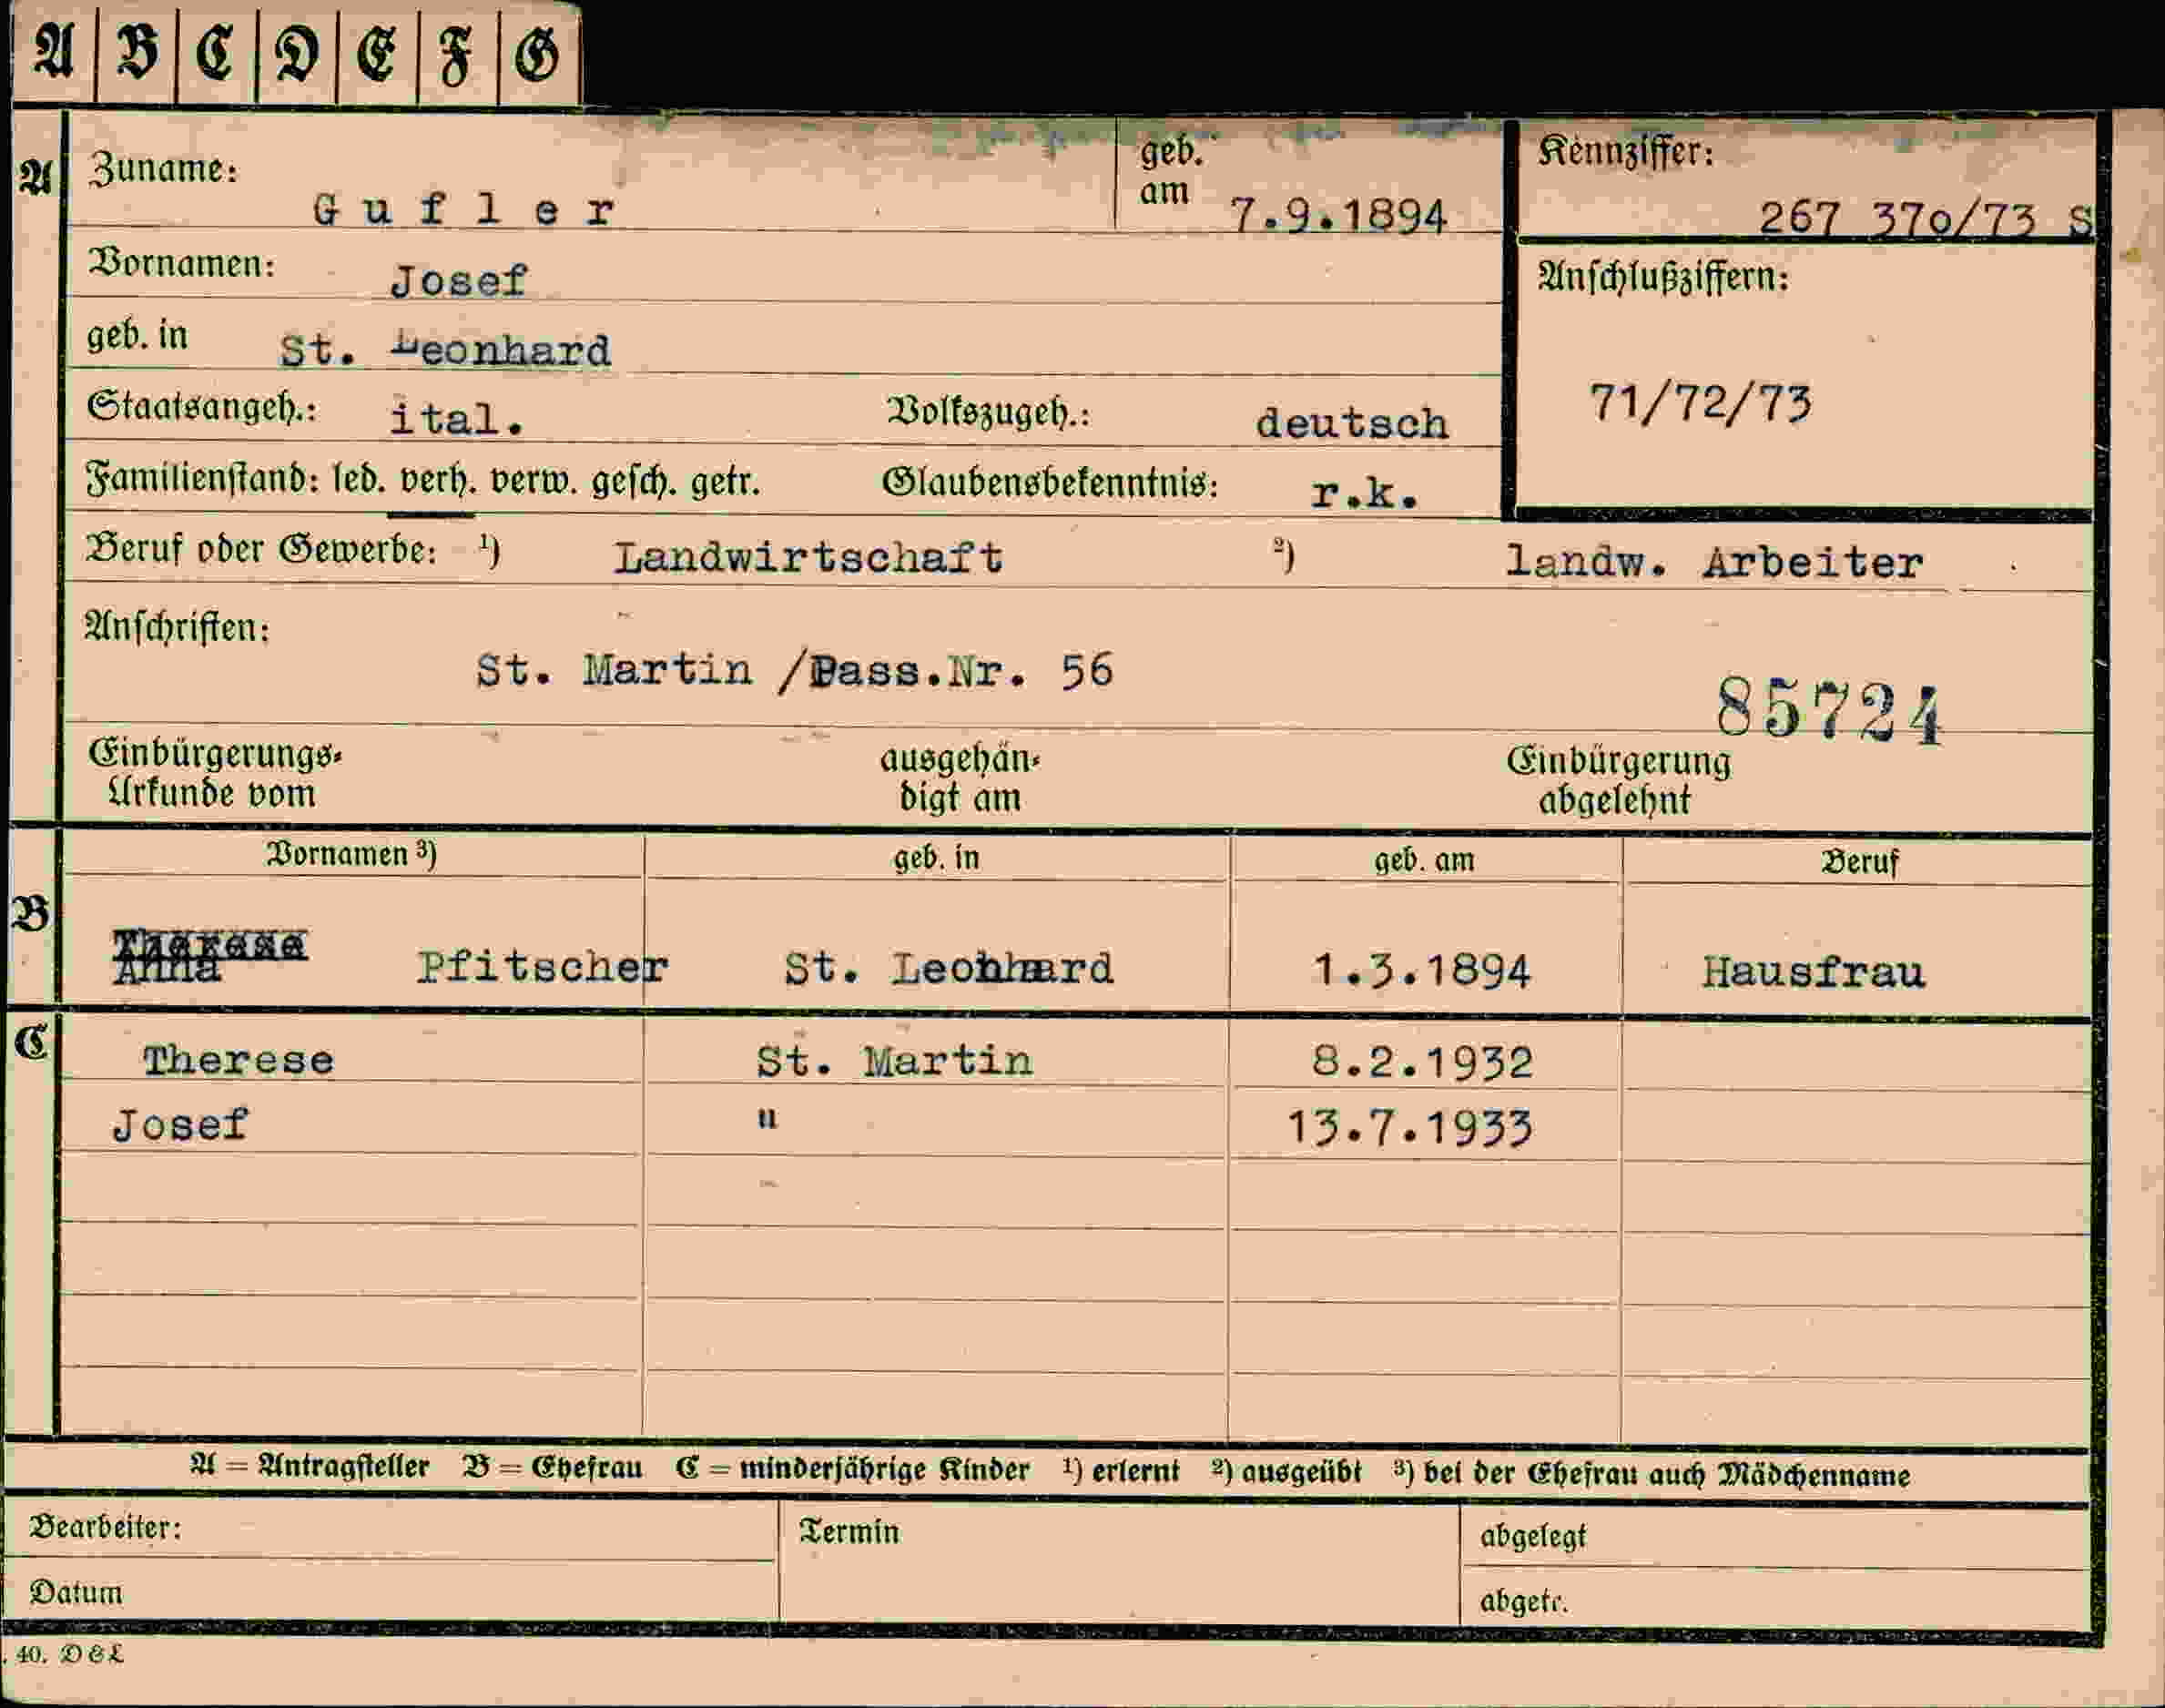 A B C D E F G
A Zuname: Gufler geb. am 7.9.1894 Kennziffer: 267 370/73 S
Vornamen: Josef Anschlußziffern:
geb. in St. Leonhard
Staatsangeh.: ital. Volkszugeh.: deutsch 71/72/73
Familienstand: led. verh. verw. gesch. getr. Glaubensbekenntnis: r.k.
Beruf oder Gewerbe: ¹) Landwirtschaft ²) landw. Arbeiter
Anschriften:
St. Martin /Pass.Nr. 56
85724
Einbürgerungs- ausgehän- Einbürgerung
Urkunde vom digt am abgelehnt
Vornamen ³) geb. in geb. am Beruf
B Therese
Anna Pfitscher St. Leonhard 1.3.1894 Hausfrau
C Therese St. Martin 8.2.1932
Josef " 13.7.1933
A = Antragsteller B = Ehefrau C = minderjährige Kinder ¹) erlernt ²) ausgeübt ³) bei der Ehefrau auch Mädchenname
Bearbeiter: Termin abgelegt
Datum abgetr.
. 40. D&L